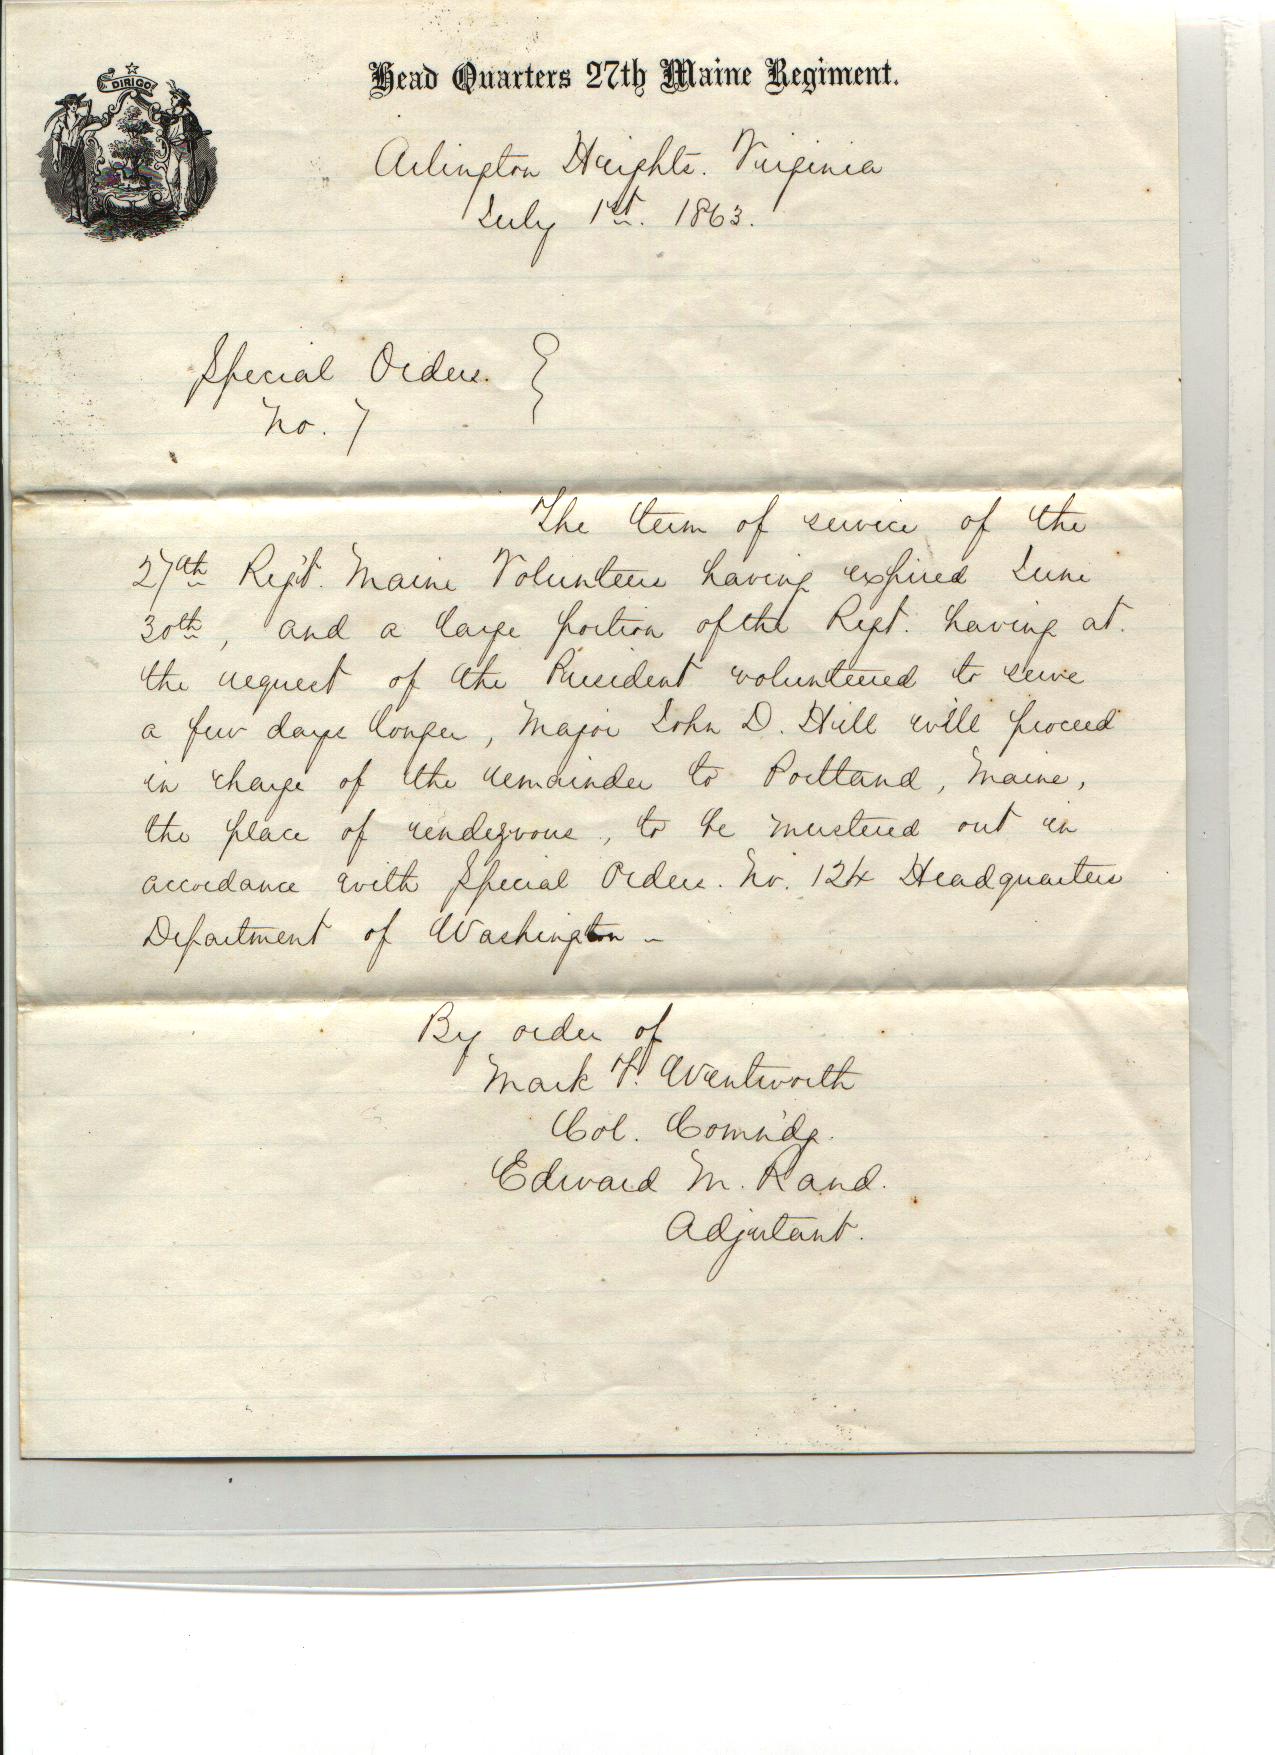 DIRIGO
Head Quarters 27th Maine Regiment.
Arlington Heights. Virginia
July 1st. 1863.
Special Orders.
No. 7
The term of service of the
27th Regt. Maine Volunteers having expired June
30th, and a large portion of the Regt. having at
the request of the President volunteered to serve
a few days longer, Major John D. Hill will proceed
in charge of the remainder to Portland, Maine,
the place of rendezvous, to be mustered out in
accordance with Special Orders. No. 124 Headquarters
Department of Washington -
By order of
Mark F. Wentworth
Col. Comm'dg.
Edward M. Rand.
Adjutant.